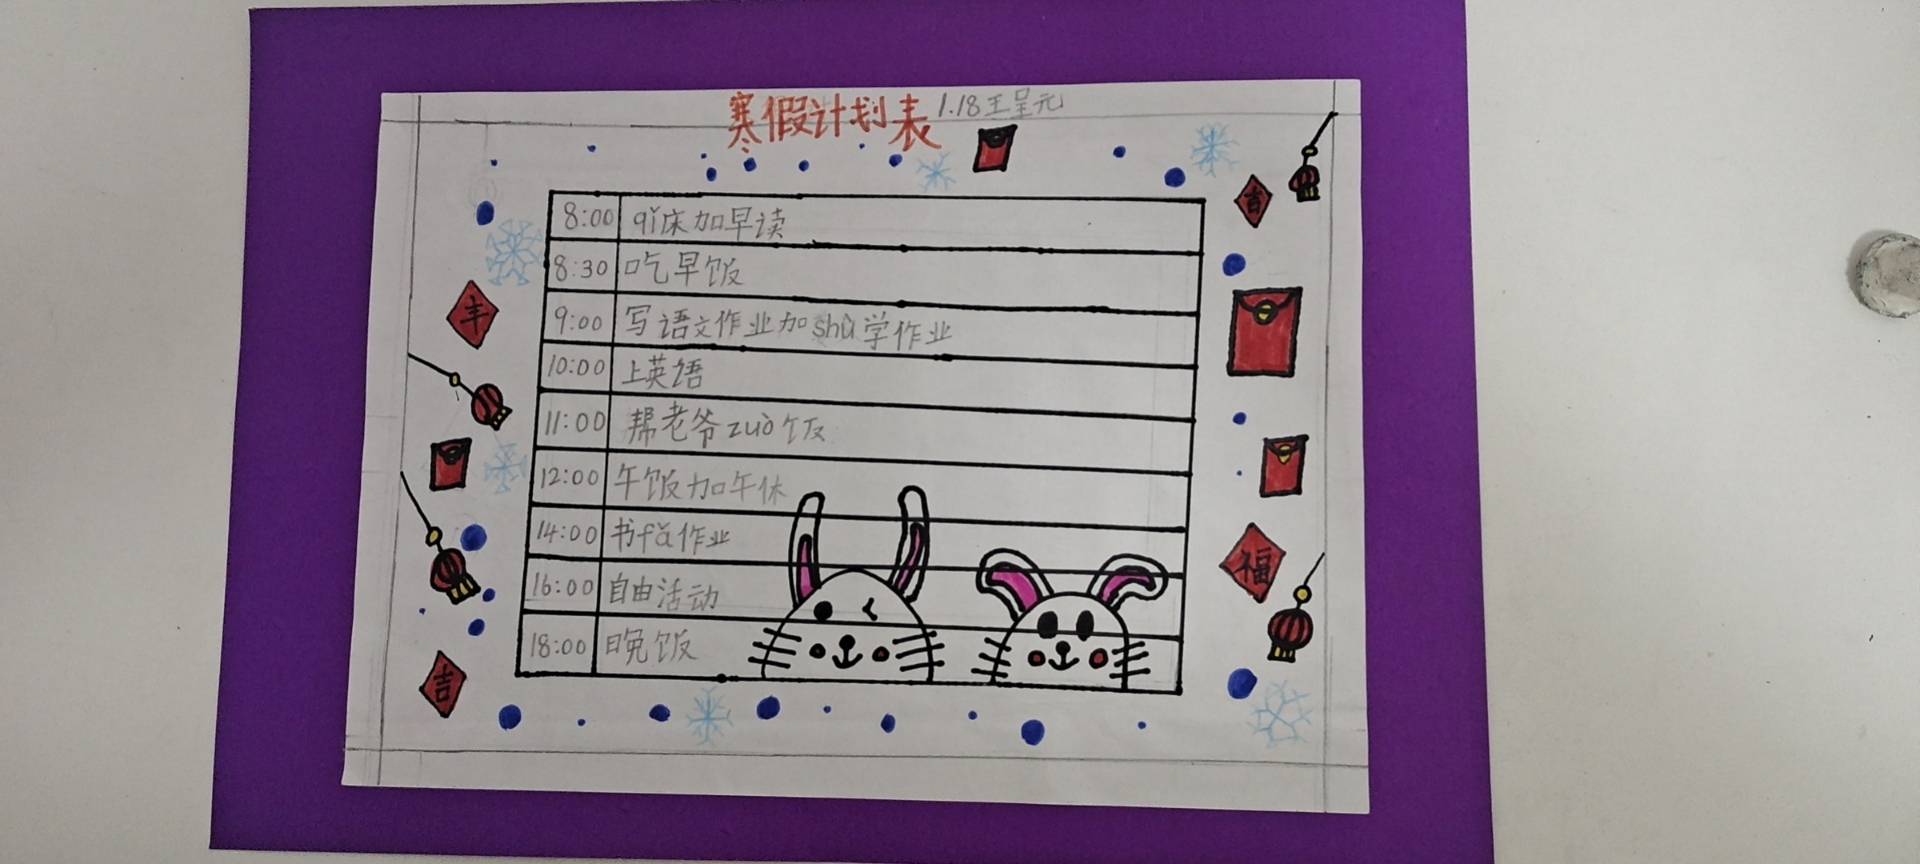 寒假计划表 1.18王呈元
吉
8:00 qǐ床加早读
8:30 吃早饭
9:00 写语文作业加shù学作业
丰
10:00 上英语
11:00 帮老爷zuò饭
12:00 午饭加午休
14:00 书fǎ作业
福
16:00 自由活动
18:00 晚饭
吉